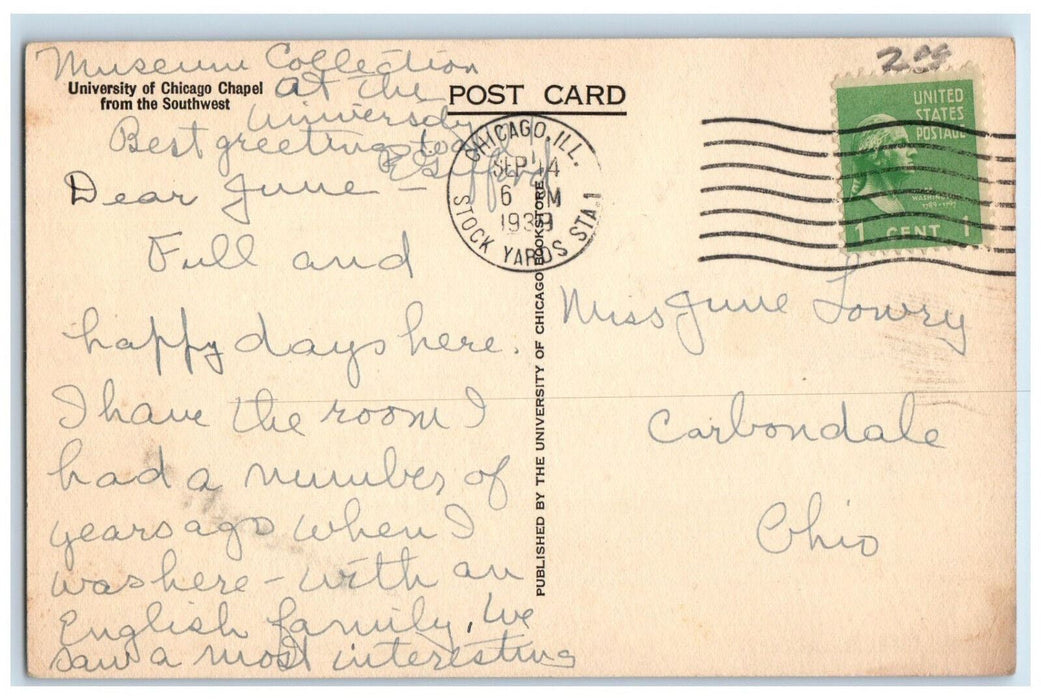 Museum Collection
at the
University
University of Chicago Chapel
from the Southwest
Best greetings to all
Dear June —
Full and
happy days here.
I have the room I
had a number of
years ago when I
was here – with an
English family. We
saw a most interesting
POST CARD
CHICAGO, ILL.
SEP 14
6 M
1939
STOCK YARDS STA.1
PUBLISHED BY THE UNIVERSITY OF CHICAGO BOOKSTORE
2.00
UNITED
STATES
POSTAGE
WASHINGTON
1789-1797
1 CENT 1
Miss June Lowry
Carbondale
Ohio